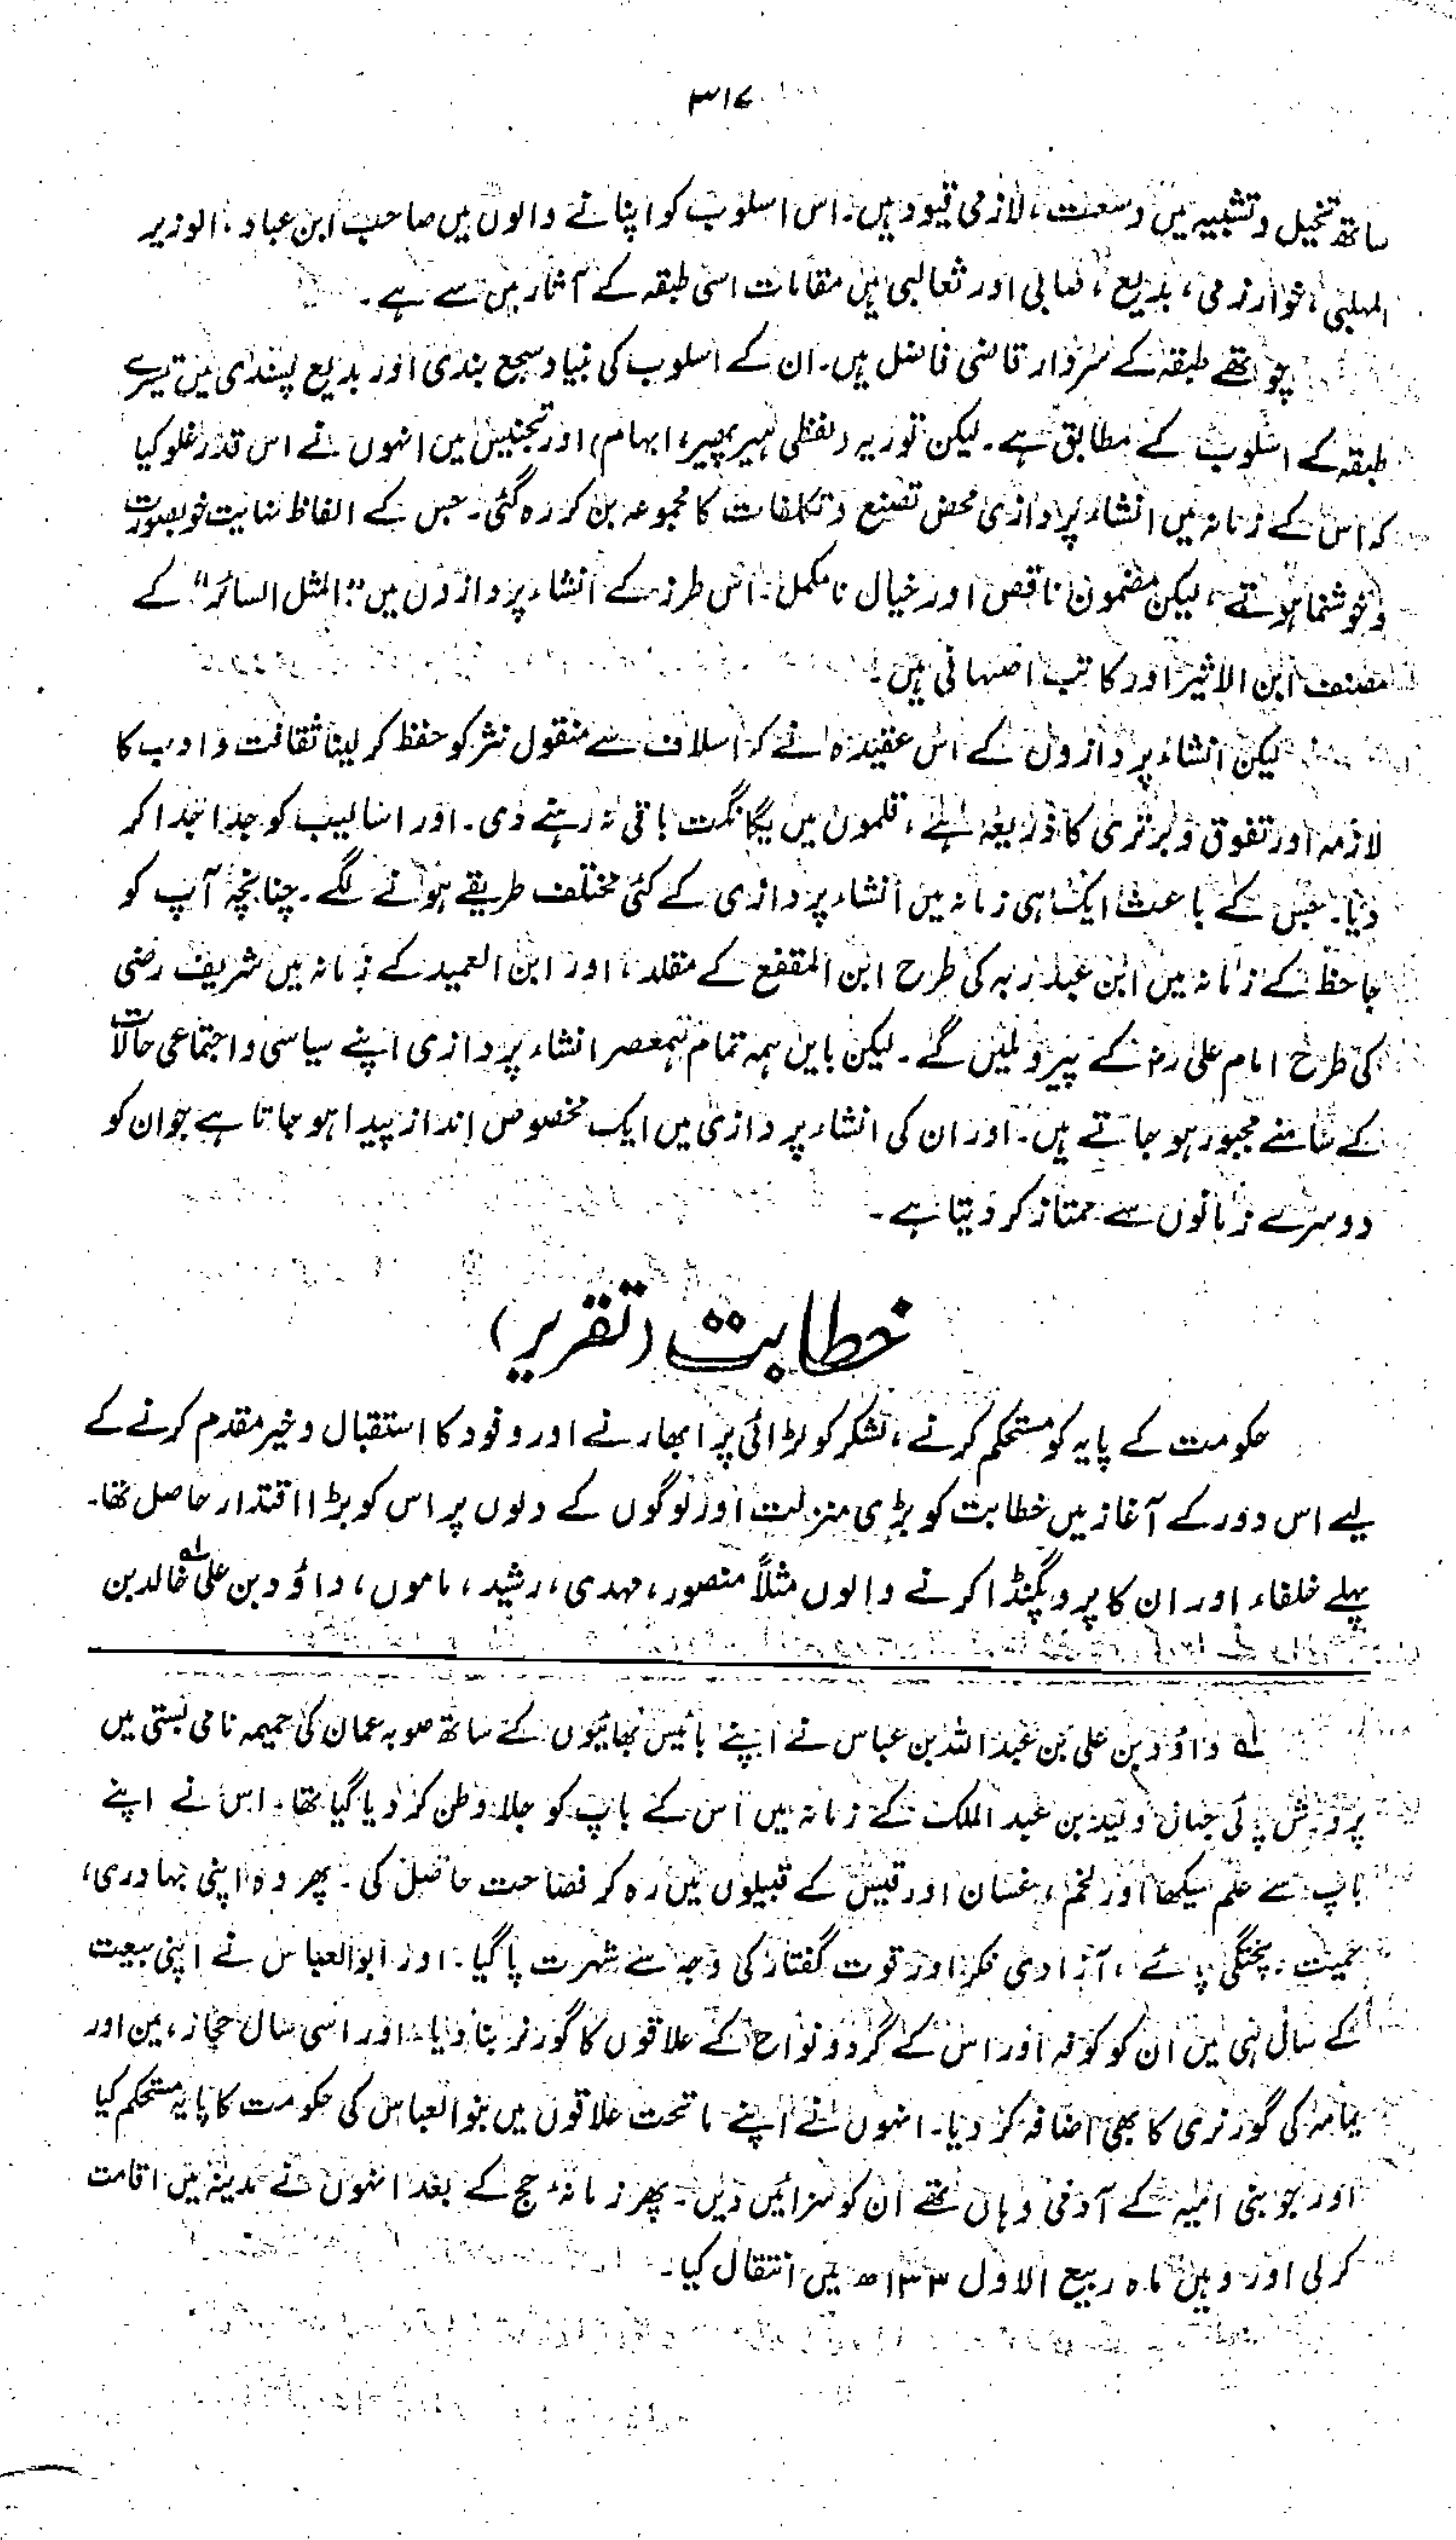 ۳۱۷
ساتھ تخیل و تشبیہ میں وسعت، لازمی قیود ہیں۔ اس اسلوب کو اپنانے والوں میں صاحب ابن عباد، الوزیر
المہلبی، خوارزمی، بدیع، صابی اور ثعالبی ہیں مقامات اسی طبقہ کے آثار میں سے ہے۔
چوتھے طبقہ کے سردار قاضی فاضل ہیں۔ ان کے اسلوب کی بنیاد سجع بندی اور بدیع پسندی میں تیسرے
طبقہ کے اسلوب کے مطابق ہے۔ لیکن توریہ (لفظی ہیر پھیر، ابہام) اور تجنیس میں انہوں نے اس قدر غلو کیا
کہ اس کے زمانہ میں انشاء پردازی محض تصنع و تکلفات کا مجموعہ بن کر رہ گئی۔ جس کے الفاظ نہایت خوبصورت
و خوشنما ہوتے، لیکن مضمون ناقص اور خیال نامکمل۔ اس طرز کے انشاء پردازوں میں "المثل السائر" کے
مصنف ابن الاثیر اور کاتب اصبہانی ہیں۔
لیکن انشاء پردازوں کے اس عقیدہ نے کہ اسلاف سے منقول نثر کو حفظ کر لینا ثقافت و ادب کا
لازمہ اور تفوق و برتری کا ذریعہ ہے، قلموں میں یگانگت باقی نہ رہنے دی۔ اور اسالیب کو جدا جدا کر
دیا۔ جس کے باعث ایک ہی زمانہ میں انشاء پردازی کے کئی مختلف طریقے ہونے لگے۔ چنانچہ آپ کو
جاحظ کے زمانہ میں ابن عبد ربہ کی طرح ابن المقفع کے مقلد، اور ابن العمید کے زمانہ میں شریف رضی
کی طرح امام علی رض کے پیرو ملیں گے۔ لیکن بایں ہمہ تمام ہمعصر انشاء پردازی اپنے سیاسی و اجتماعی حالات
کے سامنے مجبور ہو جاتے ہیں۔ اور ان کی انشاء پردازی میں ایک مخصوص انداز پیدا ہو جاتا ہے جو ان کو
دوسرے زمانوں سے ممتاز کر دیتا ہے۔
خطابت (تقریر)
حکومت کے پایہ کو مستحکم کرنے، لشکر کو لڑائی پر ابھارنے اور وفود کا استقبال و خیر مقدم کرنے کے
لیے اس دور کے آغاز میں خطابت کو بڑی منزلت اور لوگوں کے دلوں پر اس کو بڑا اقتدار حاصل تھا۔
پہلے خلفاء اور ان کا پروپگینڈا کرنے والوں مثلاً منصور، مہدی، رشید، ماموں، داؤد بن علی لہ خالد بن
لہ داؤد بن علی بن عبد اللہ بن عباس نے اپنے بائیس بھائیوں کے ساتھ صوبہ عمان کی حمیمہ نامی بستی میں
پرورش پائی جہاں ولید بن عبد الملک کے زمانہ میں اس کے باپ کو جلا وطن کر دیا گیا تھا۔ اس نے اپنے
باپ سے علم سیکھا اور لخم، غسان اور قیس کے قبیلوں میں رہ کر فصاحت حاصل کی۔ پھر وہ اپنی بہادری،
حمیت، پختگی پائے، آزادی فکر اور قوت گفتار کی وجہ سے شہرت پا گیا۔ اور ابو العباس نے اپنی بیعت
کے سال ہی میں ان کو کوفہ اور اس کے گرد و نواح کے علاقوں کا گورنر بنا دیا۔ اور اسی سال حجاز، یمن اور
یمامہ کی گورنری کا بھی اضافہ کر دیا۔ انہوں نے اپنے ماتحت علاقوں میں بنو العباس کی حکومت کا پایہ مستحکم کیا
اور جو بنی امیہ کے آدمی وہاں تھے ان کو سزائیں دیں۔ پھر زمانہ حج کے بعد انہوں نے مدینہ میں اقامت
کر لی اور وہیں ماہ ربیع الاول ۱۳۳ھ میں انتقال کیا۔